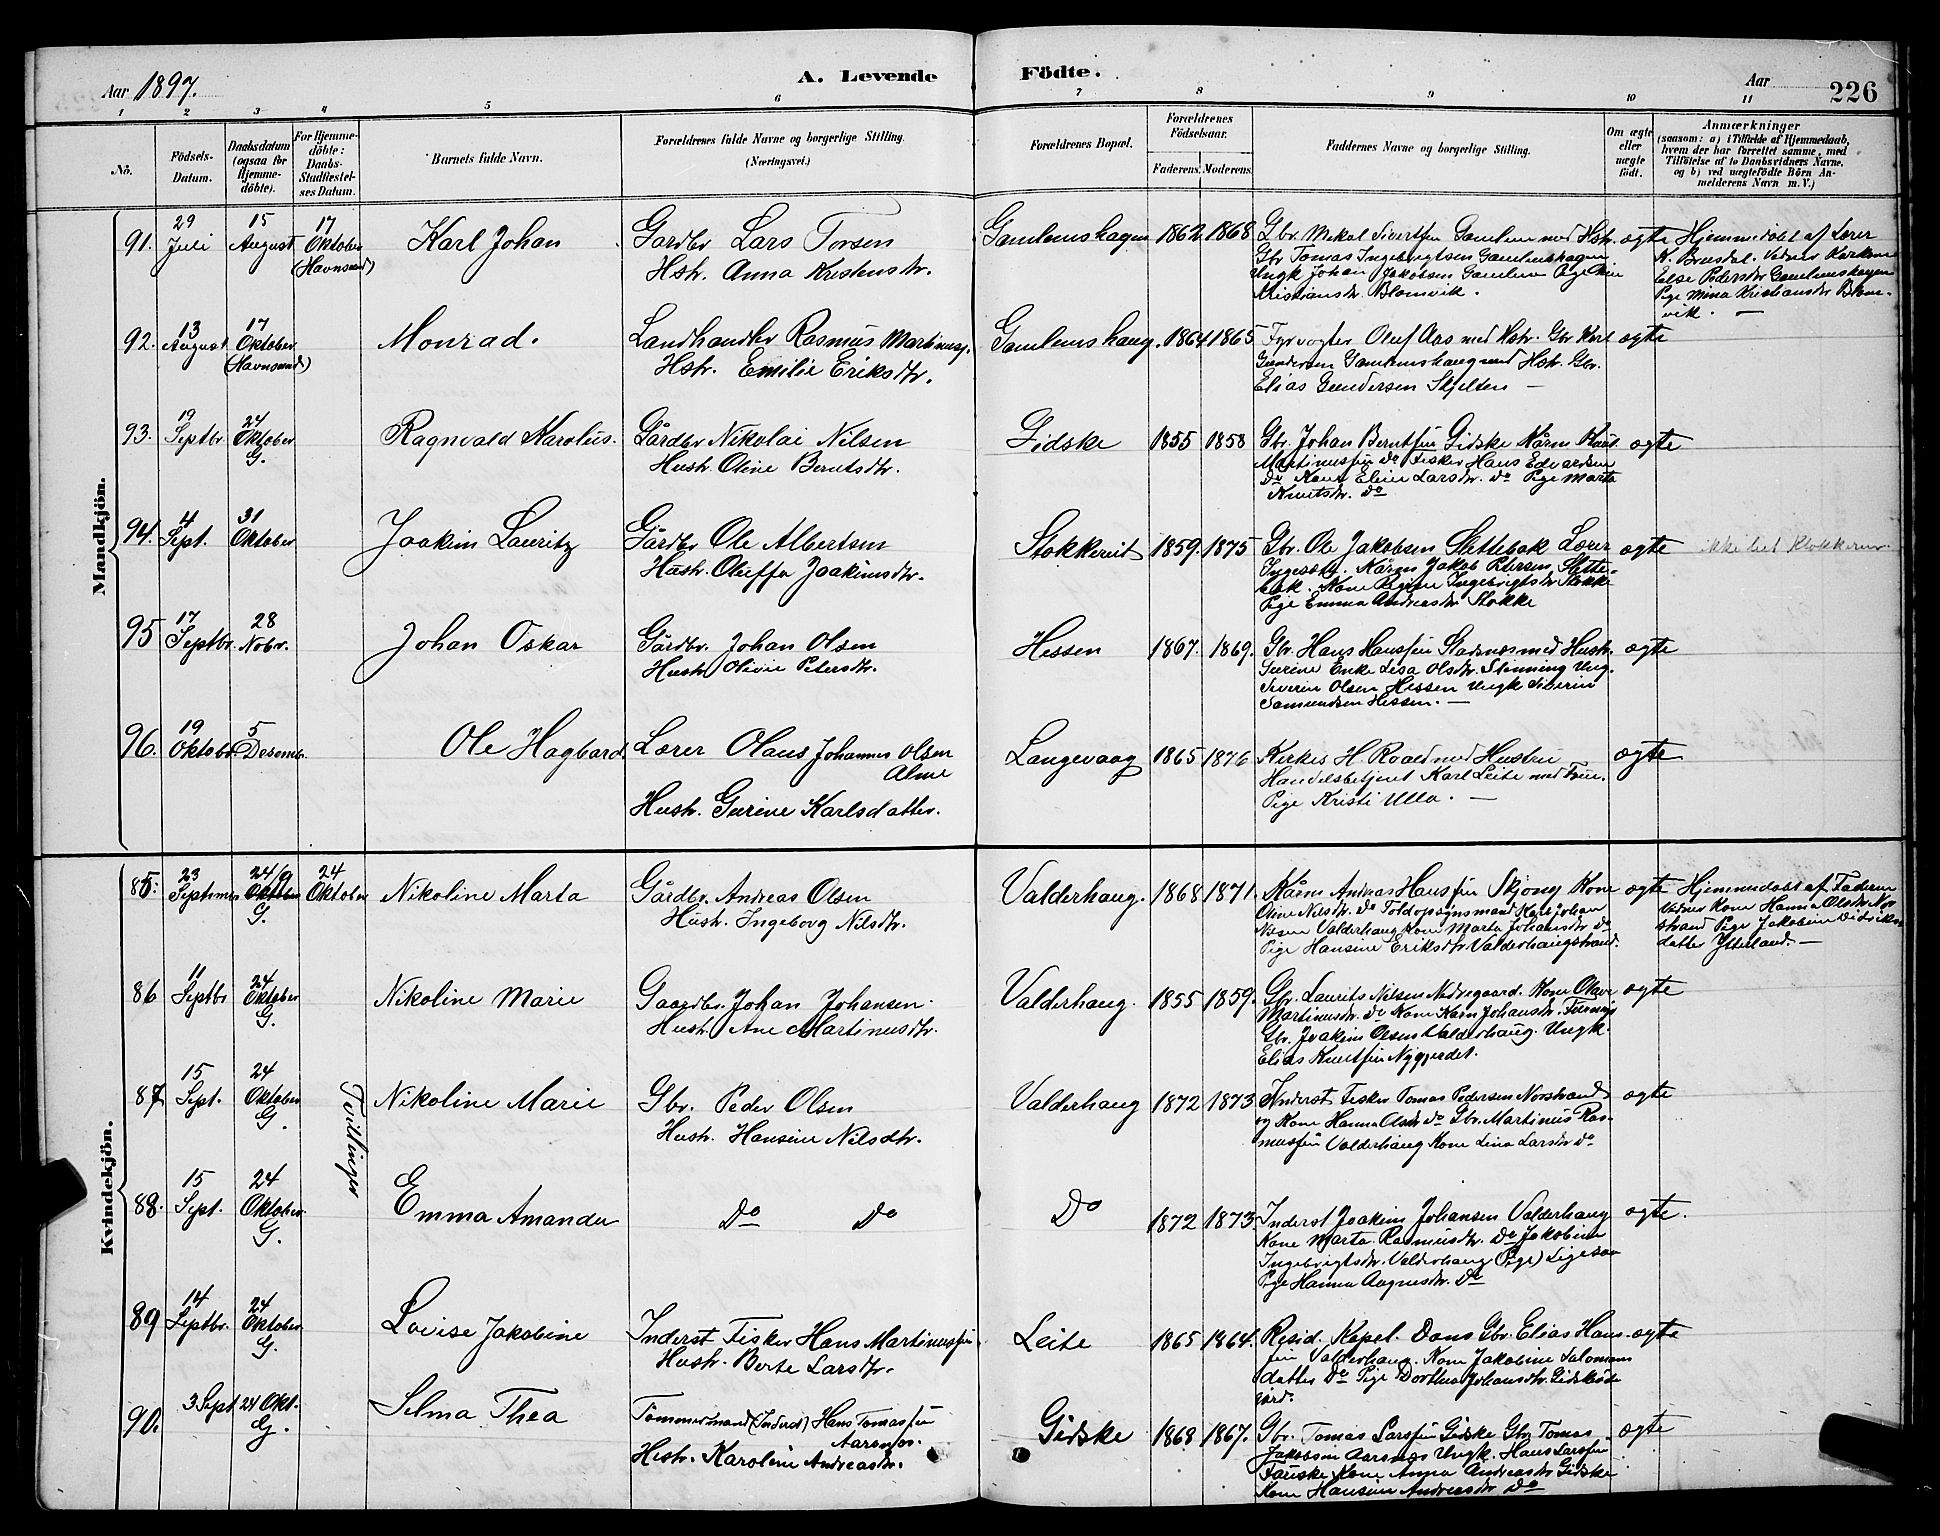 Aar 1897.
A. Levende
Födte.
Aar
226
1 2 3 4 5 6 7 8 9 10 11
No.
Födsels-
Datum.
Daabsdatum
(ogsaa for
Hjemme-
döbte).
For Hjemme-
döbte:
Daabs-
Stadfæstel-
ses Datum.
Barnets fulde Navn.
Forældrenes fulde Navne og borgerlige Stilling.
(Næringsvei.)
Forældrenes Bopæl.
Forældrenes
Födselsaar.
Faderens. Moderens.
Faddernes Navne og borgerlige Stilling.
Om ægte
eller
uægte
födt.
Anmærkninger
(saasom: a) i Tilfælde af Hjemmedaab,
hvem der har forrettet samme, med
Tilföielse af to Daabsvidners Navne,
og b) ved uægtefödte Börn An-
melderens Navn m. V.)
Mandkjön.
91. 29 Juli 15 August 17 Oktober (Havnsund) Karl Johan
Gardbr Lars Torsen
Hstr. Anna Kristenstr.
Gamlemshagen 1862 1868
Gbr. Mikal Sivertsen Gamlem med Hstr.
Gbr Tomas Ingebrigtsen Gamlemshagen
Ungk Johan Jakobsen Gamlem Pige
Kristiansdr. Blomvik.
ægte
Hjemmedöbt af Lærer
K. Brusdal. Vidner
Else Pedersdr Gamlemshagen
Pige Mina Kristiansdr Blom-
vik. —
92. 13 August 17 Oktober (Havnsund) Monrad.
Landhandler Rasmus Martinuss.
Hstr. Emilie Eriksdtr.
Gamlemshaug. 1864 1865
Fyrvogter Oluf Aas med Hstr. Gbr Karl
Gundersen Gamlemshaug med Hstr. Gbr.
Elias Gundersen Skjelten —
ægte
93. 19 Septbr 24 Oktober G. Ragnvald Karolus.
Gårdbr Nikolai Nilsen
Hustr. Oline Berntsdtr.
Gidske 1855 1858
Gbr. Johan Berntsen Gidske Kårm Knut
Martinussen Do Fisker Hans Edvardsen
Do Kone Eline Larsdtr. Do Pige Marta
Knutsdtr. Do
ægte
94. 4 Sept. 31 Oktober Joakim Lauritz
Gårdbr Ole Albertsen
Hustr. Oluffa Joakimsdtr.
Stokkereit 1859. 1875
Gbr. Ole Jakobsen Slettebak Lærer
Kårm Jakob Petersen Slette-
bak. Kone Regine Ingebrigtsdr Stokke
Pige Emma Andreasdr Stokke
ægte
95 17 Septbr. 28 Nobr. Johan Oskar
Gårdbr. Johan Olsen
Hustr Olivie Petersdtr.
Hessen 1867. 1869.
Gbr. Hans Hanssen Gladnes med Hustr.
Gurine Enke Lisa Olsdtr. Slinning Ung.
Severin Olsen Hessen Ungk Siverin
Samundsen Hessen. —
ægte
96. 19 Oktobr. 5 Desember. Ole Hagbard.
Lærer Olaus Johannes Olsen
Alme
Hustr. Gurine Karlsdatter.
Langevaag 1865 1876
Kirkes H. Roald med Hustru
Handelsbetjent Karl Leite med Frue.
Pige Kristi Ulla. —
ægte
Kvindekjön.
85: 23 Septmer 24/9 Oktober G. 24 Oktober Nikoline Marta
Gårdbr. Andreas Olsen
Hustr. Ingeborg Nilsdtr.
Valderhaug. 1868 1871.
Kårm Andreas Hanssen Skjong Kone
Oline Nilsdtr. Do Toldopsynsmand Karl Johan
Nilsen Valderhaug Kone Marta Johansdtr Do
Pige Hansine Eriksdtr Valderhaugstrand.
ægte
Hjemmedöbt af Faderen
Vidner Kone Hanna Olsdtr Nor
strand Pige Jakobine Didriks
datter Ytterland. —
86 11 Septbr 24 Oktober G. Nikoline Marie
Gaardbr. Johan Johansen.
Hustr Ane Martinusdtr.
Valderhaug. 1855 1859.
Gbr. Laurits Nilsen Nedregaard. Kone Olave
Martinusdr. Do Kone Karn Johansdr.
Gbr. Joakim Olsen Valderhaug. Ungk.
Elias Knutsen Nygjerdet.
ægte
Tvillinger
87 15 Sept. 24 Oktober G. Nikoline Marie
Gbr. Peder Olsen
Hustr. Hansine Nilsdtr.
Valderhaug 1872 1873
Inderst Fisker Tomas Pedersen Norstrand
og Kone Hanna Olsdr Do Gbr. Martinus Ras-
mussen Valderhaug Kone Lina Larsdr Do
ægte
88. 15 Sept. 24 Oktober G. Emma Amanda
Do Do
Do 1872 1873
Inderst Joakim Johansen Valderhaug
Kone Marta Rasmusdtr. Do Jakobine
Ingebrigtsdtr. Valderhaug (Pige) Ligesaa
Pige Hanna Aagnesdtr. Do
ægte.
89 14 Septbr. 24 Oktober G. Lovise Jakobine
Inderst Fisker Hans Martinussen
Hustr. Berte Larsdtr.
Leite 1865 1864.
Resid. Kapel. Dons Gbr. Elias Hans-
sen Valderhaug. Kone Jakobine Salomons
datter Do Pige Dorthea Johansdtr. Gidske
ægte
90. 3 Sept 24 Okt. G. Selma Thea
Tömmermand (Inderst) Hans Tomassen
Aarsnes.
Hustr. Karoline Andreasdtr.
Gidske 1868 1867.
Gbr. Tomas Larssen Gidske Gbr Tomas
Jakobsen Aarsnes Ungk. Hans Larssen
Kone Anna Andreasdtr Gidske
Kone Hansine Andreasdtr Do
ægte